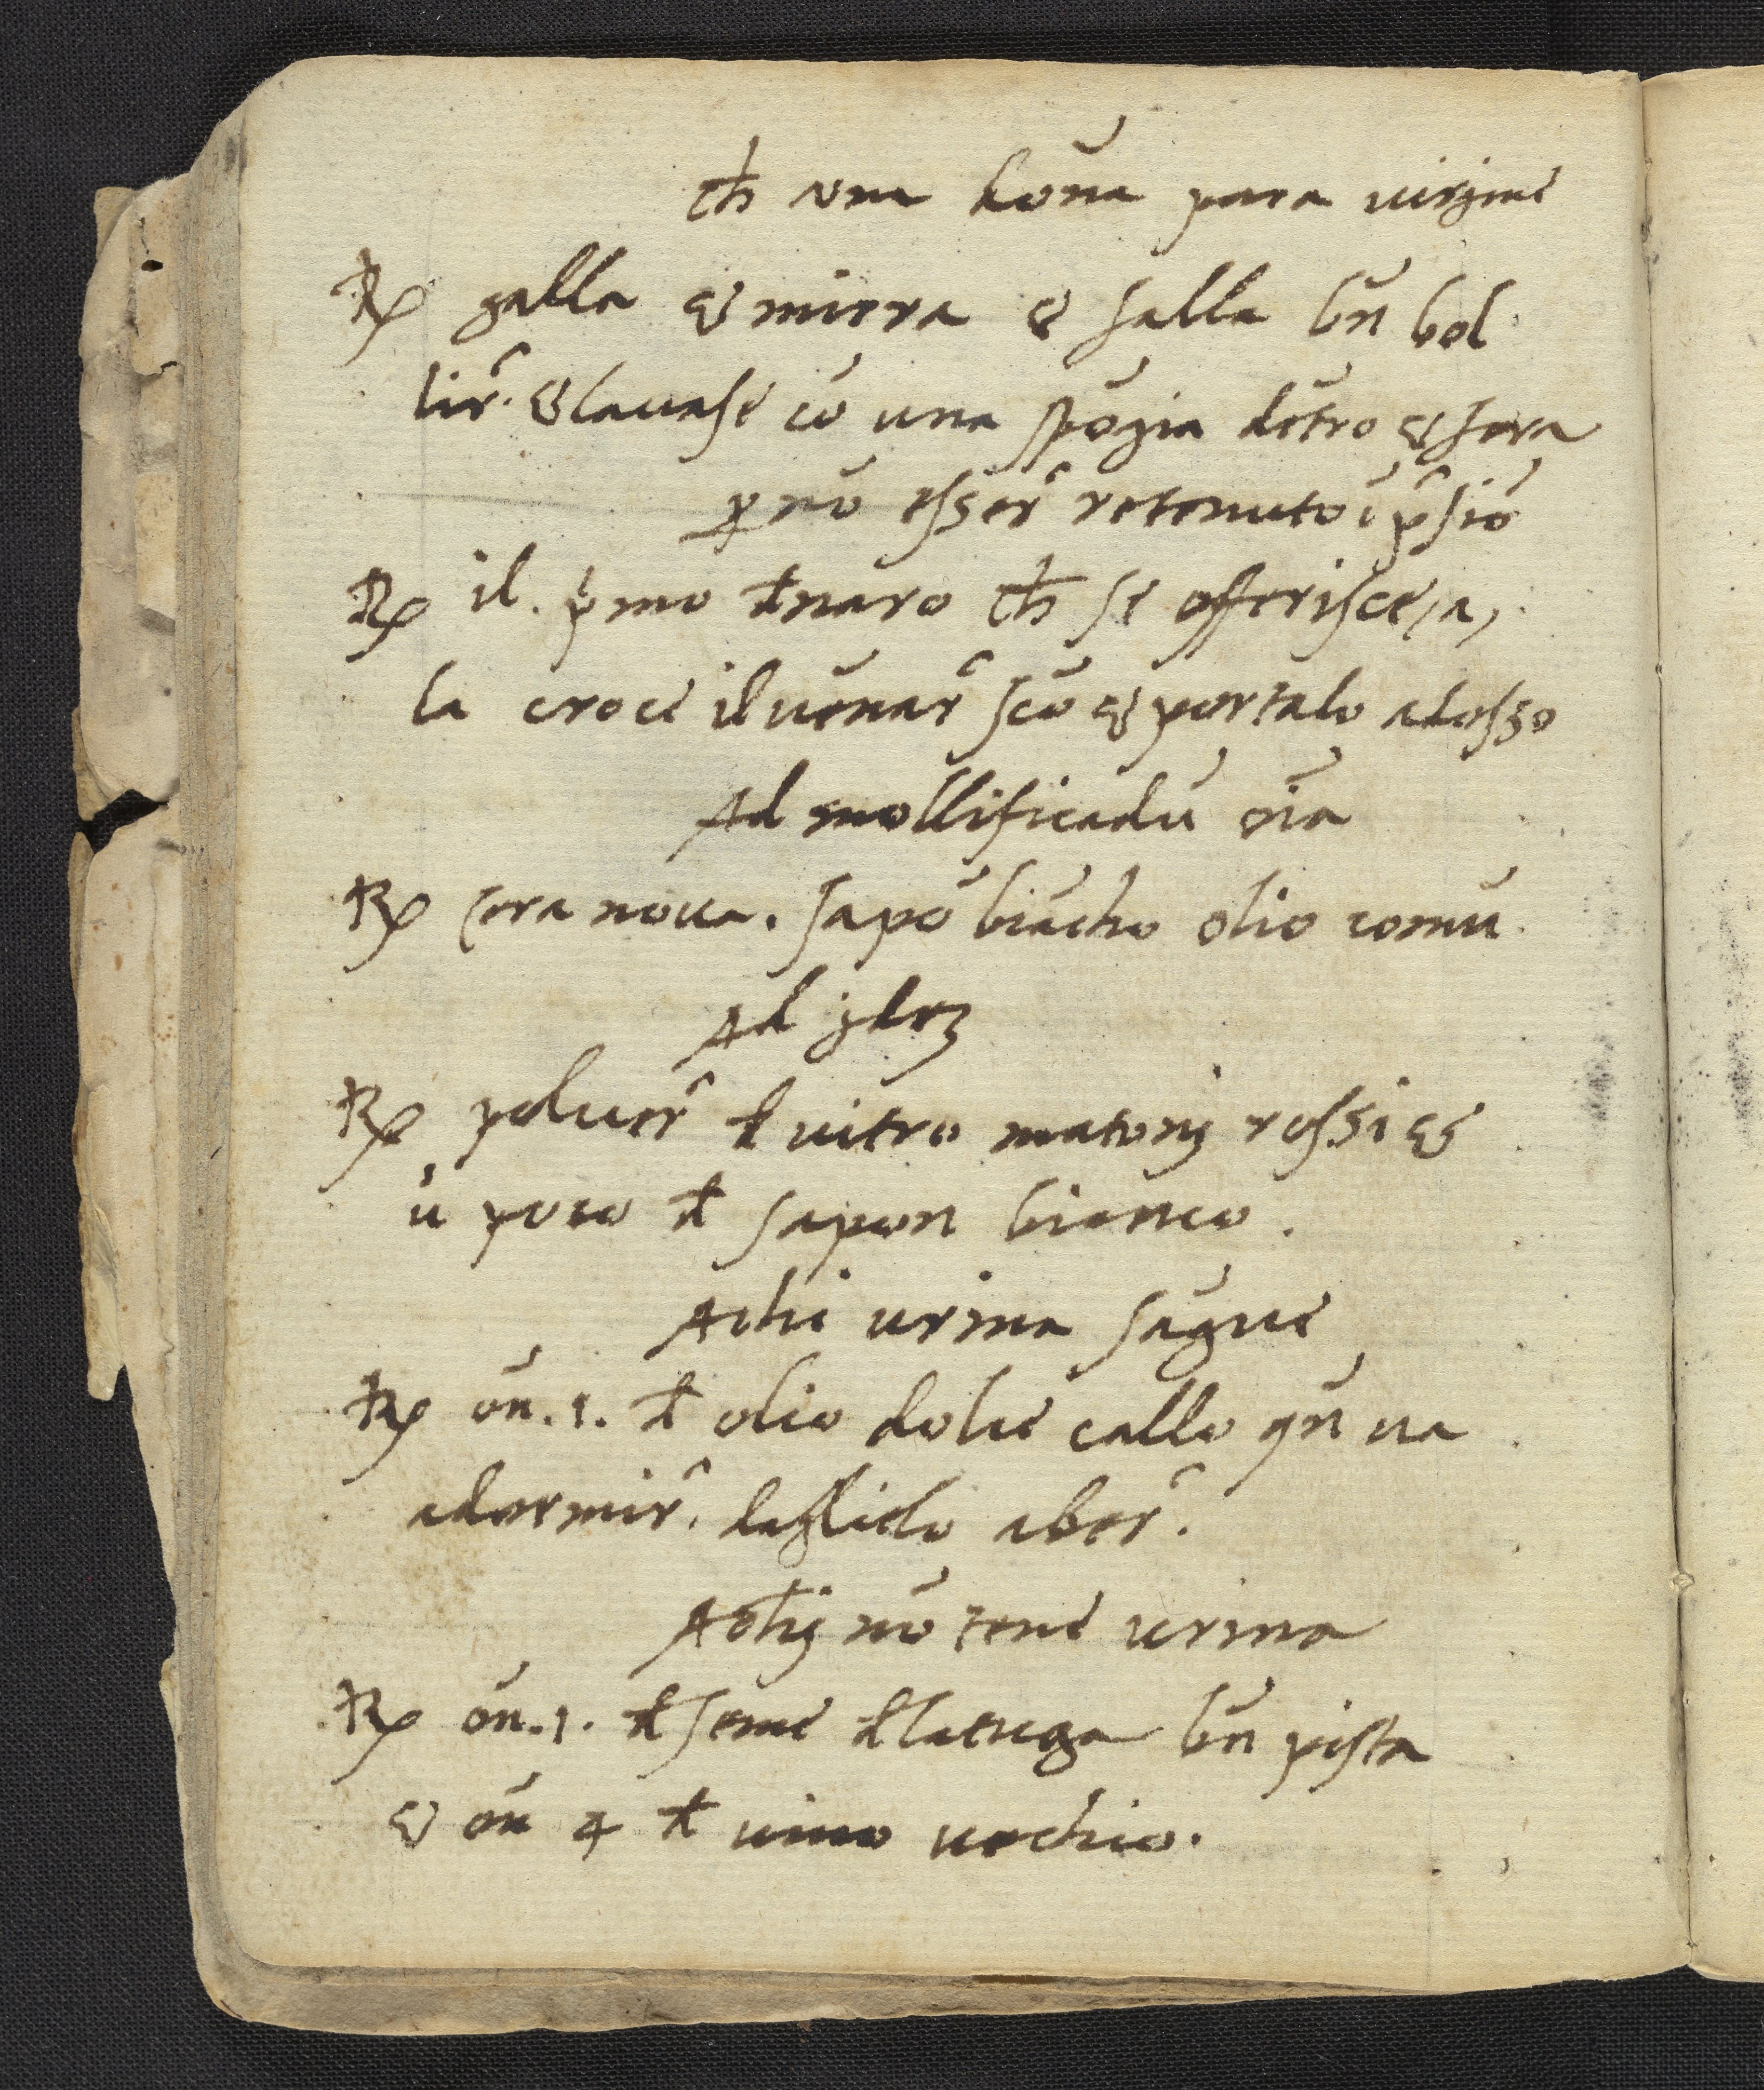 ch̄ una dōna para uirgine
℞ galla & mirra & falla bn̄ bol
lir̄. & lauase cō una spōgia dētro & fora
ꝑ nō esser̄ retenuto ī p̄siō
℞ il. p̄mo đnaro ch̄ se offerisce, a,
la croce il uēnar̄ scō & portalo adosso
Ad mollificādū oīa
℞ Cera noua. sapō biācho olio comū
Ad
℞ poluer̄ đ uitro matonj rossi &
ū poco đ sapon bianco.
Achi urina sāgue
℞ on̄. 1. đ olio dolce callo qn̄ ua
adormir̄. daglielo aber̄.
Achj nō tene urina
℞ on̄. 1. đ seme đ latuga bn̄ pista
& on̄ 4 đ uino uechio.